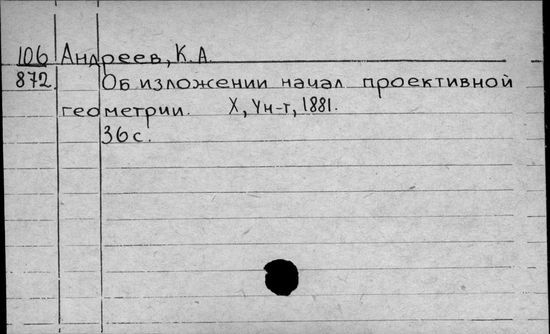 106 Андреев, К. А.
872. Об изложении начал проективной
геометрии. Х, Ун-т, 1881.
36 с.